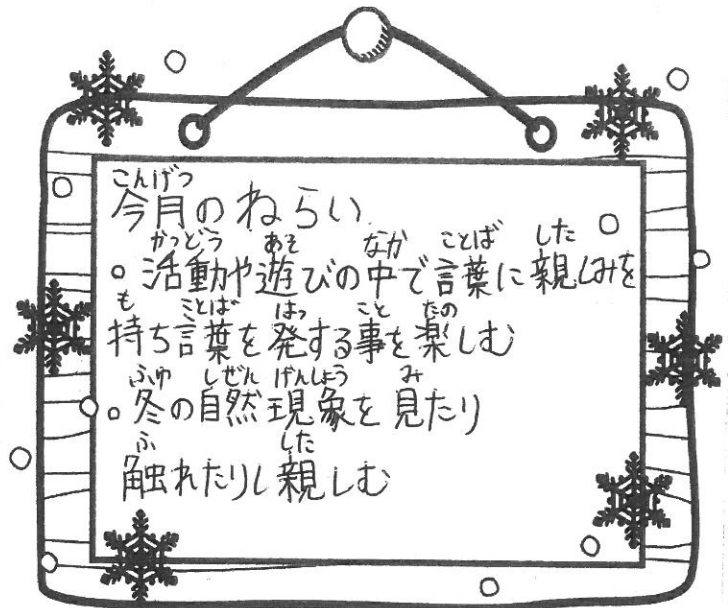 こんげつ
今月のねらい
かつどう あそ なか ことば した
○活動や遊びの中で言葉に親しみを
も ことば はっ こと たの
持ち言葉を発する事を楽しむ
ふゆ しぜん げんしょう み
○冬の自然現象を見たり
ふ した
触れたりし親しむ